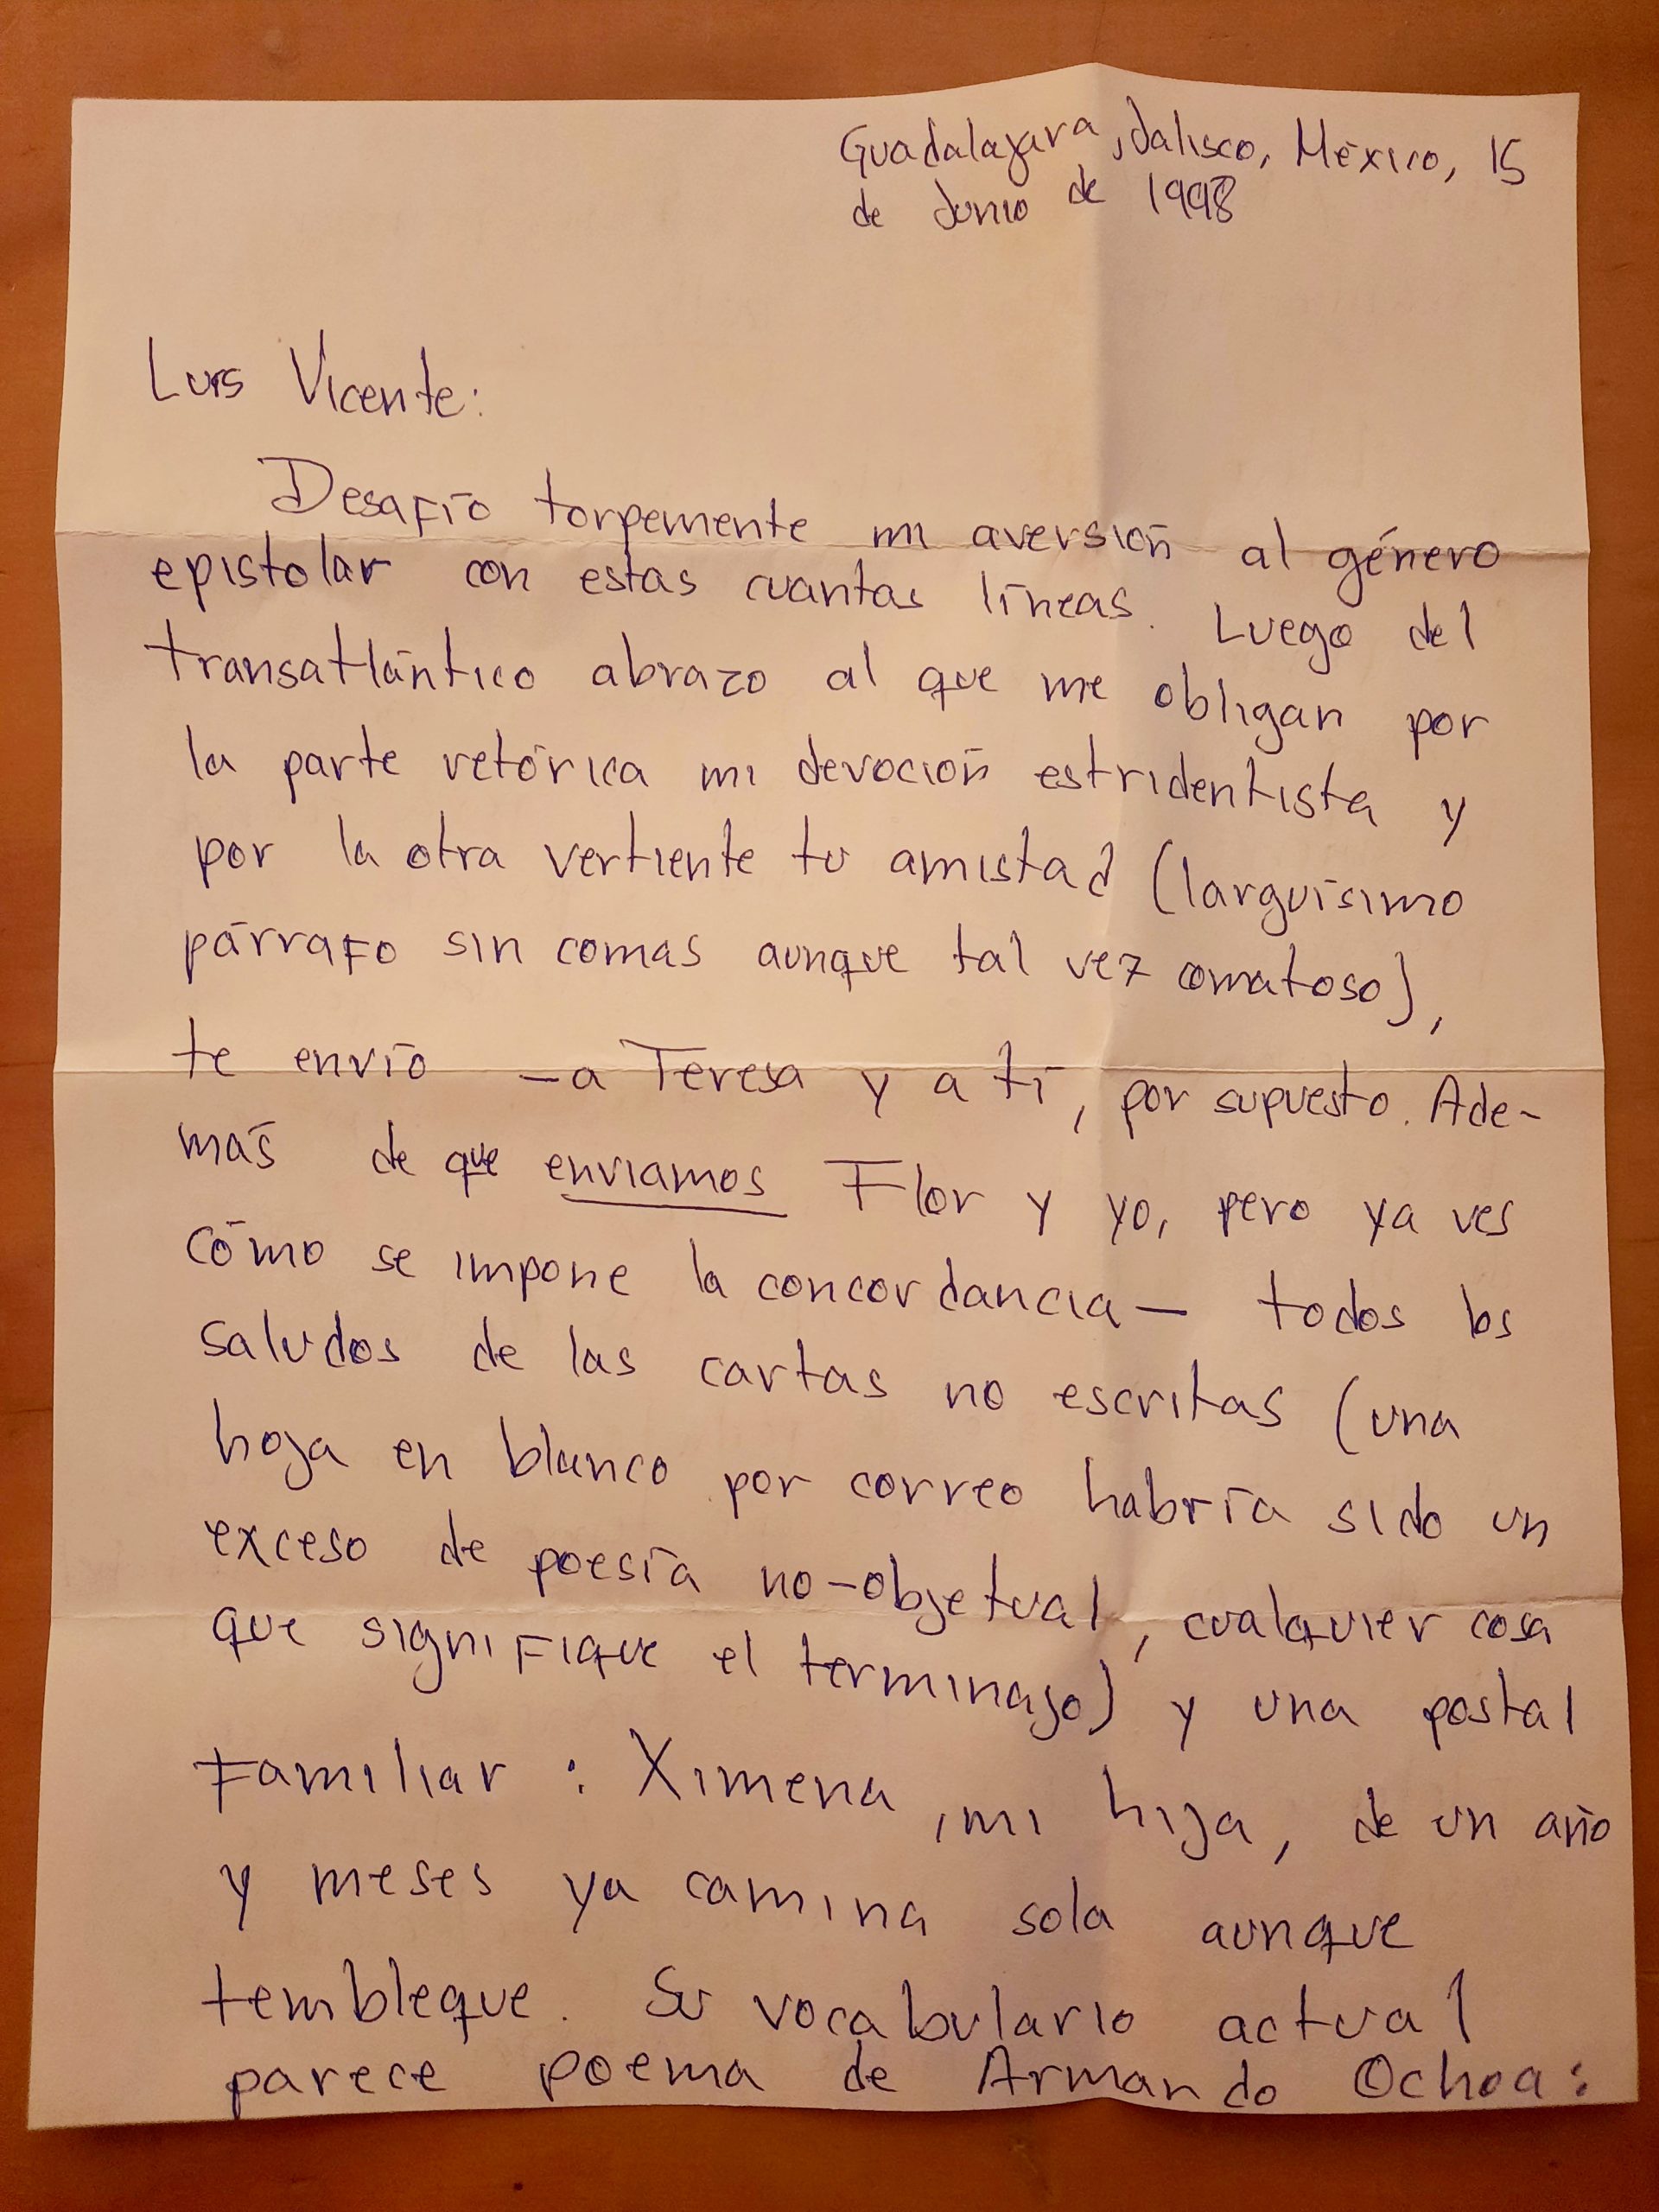 Guadalajara, Jalisco, México, 15
de Junio de 1998
Luis Vicente:
Desafío torpemente mi aversión al género
epistolar con estas cuantas líneas. Luego del
transatlántico abrazo al que me obligan por
la parte retórica mi devoción estridentista y
por la otra vertiente tu amistad (larguísimo
párrafo sin comas aunque tal vez comatoso),
te envío —a Teresa y a tí, por supuesto. Ade-
más de que enviamos Flor y yo, pero ya ves
cómo se impone la concordancia— todos los
saludos de las cartas no escritas (una
hoja en blanco por correo habría sido un
exceso de poesía no-objetual, cualquier cosa
que signifique el terminajo) y una postal
familiar: Ximena, mi hija, de un año
y meses ya camina sola aunque
tembleque. Su vocabulario actual
parece poema de Armando Ochoa: